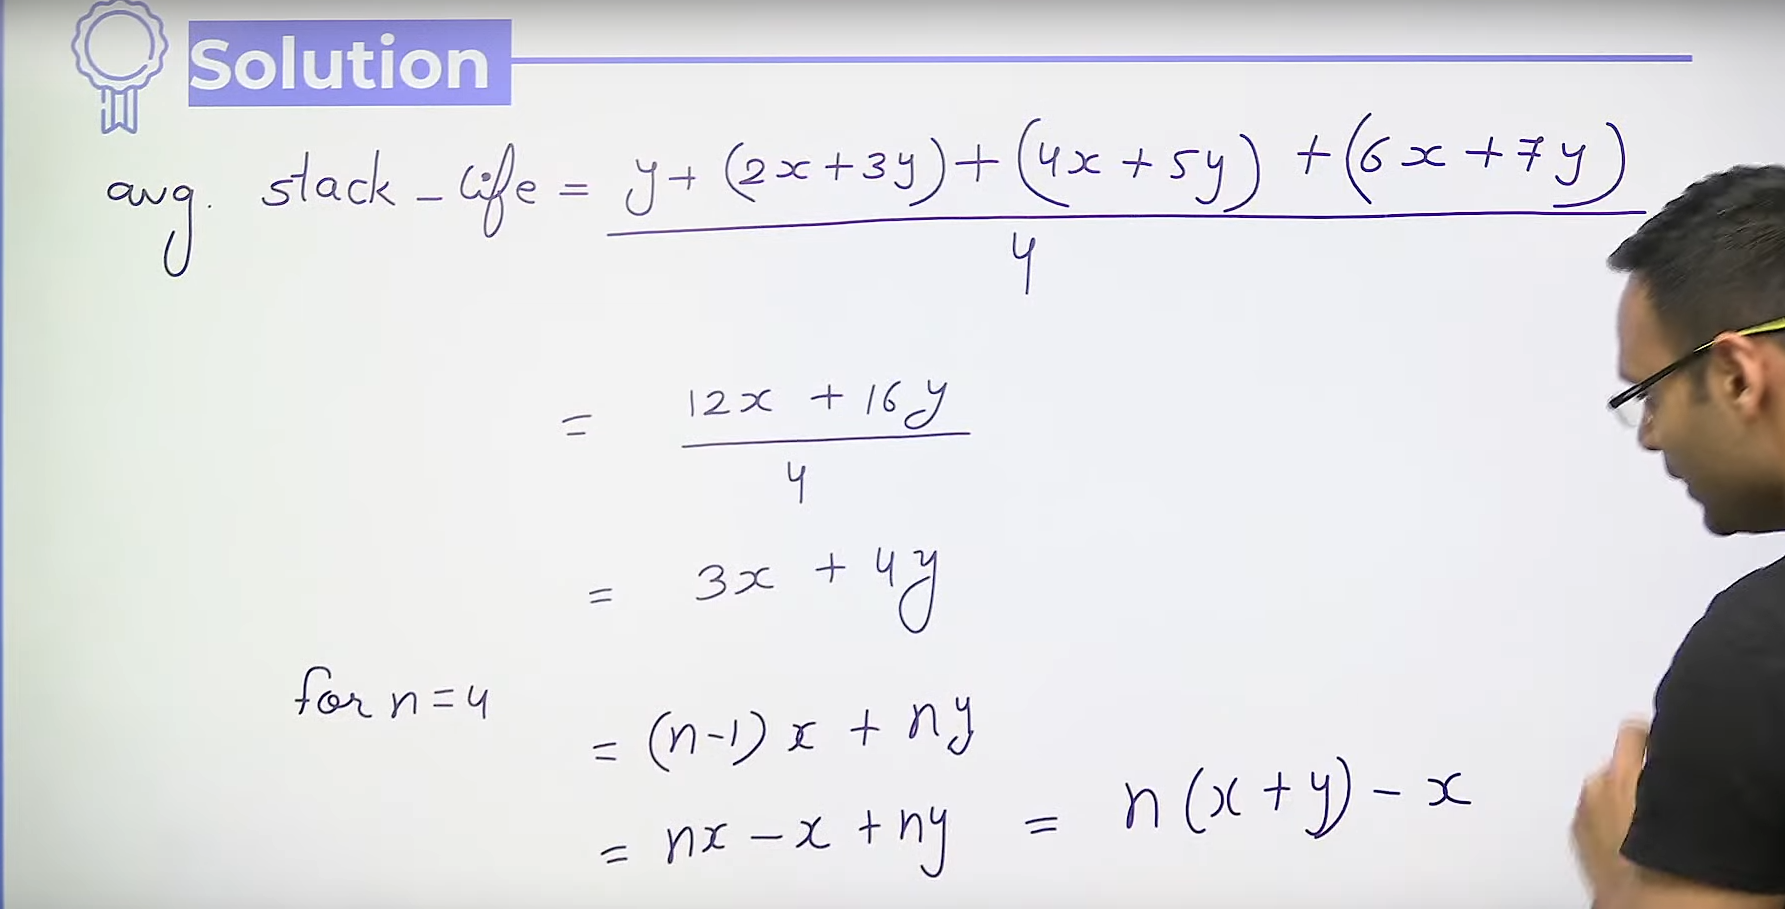 Solution
avg. stack_life = y + (2x + 3y) + (4x + 5y) + (6x + 7y)
4
= 12x + 16y
4
= 3x + 4y
for n = 4
= (n-1) x + ny
= nx - x + ny = n(x + y) - x